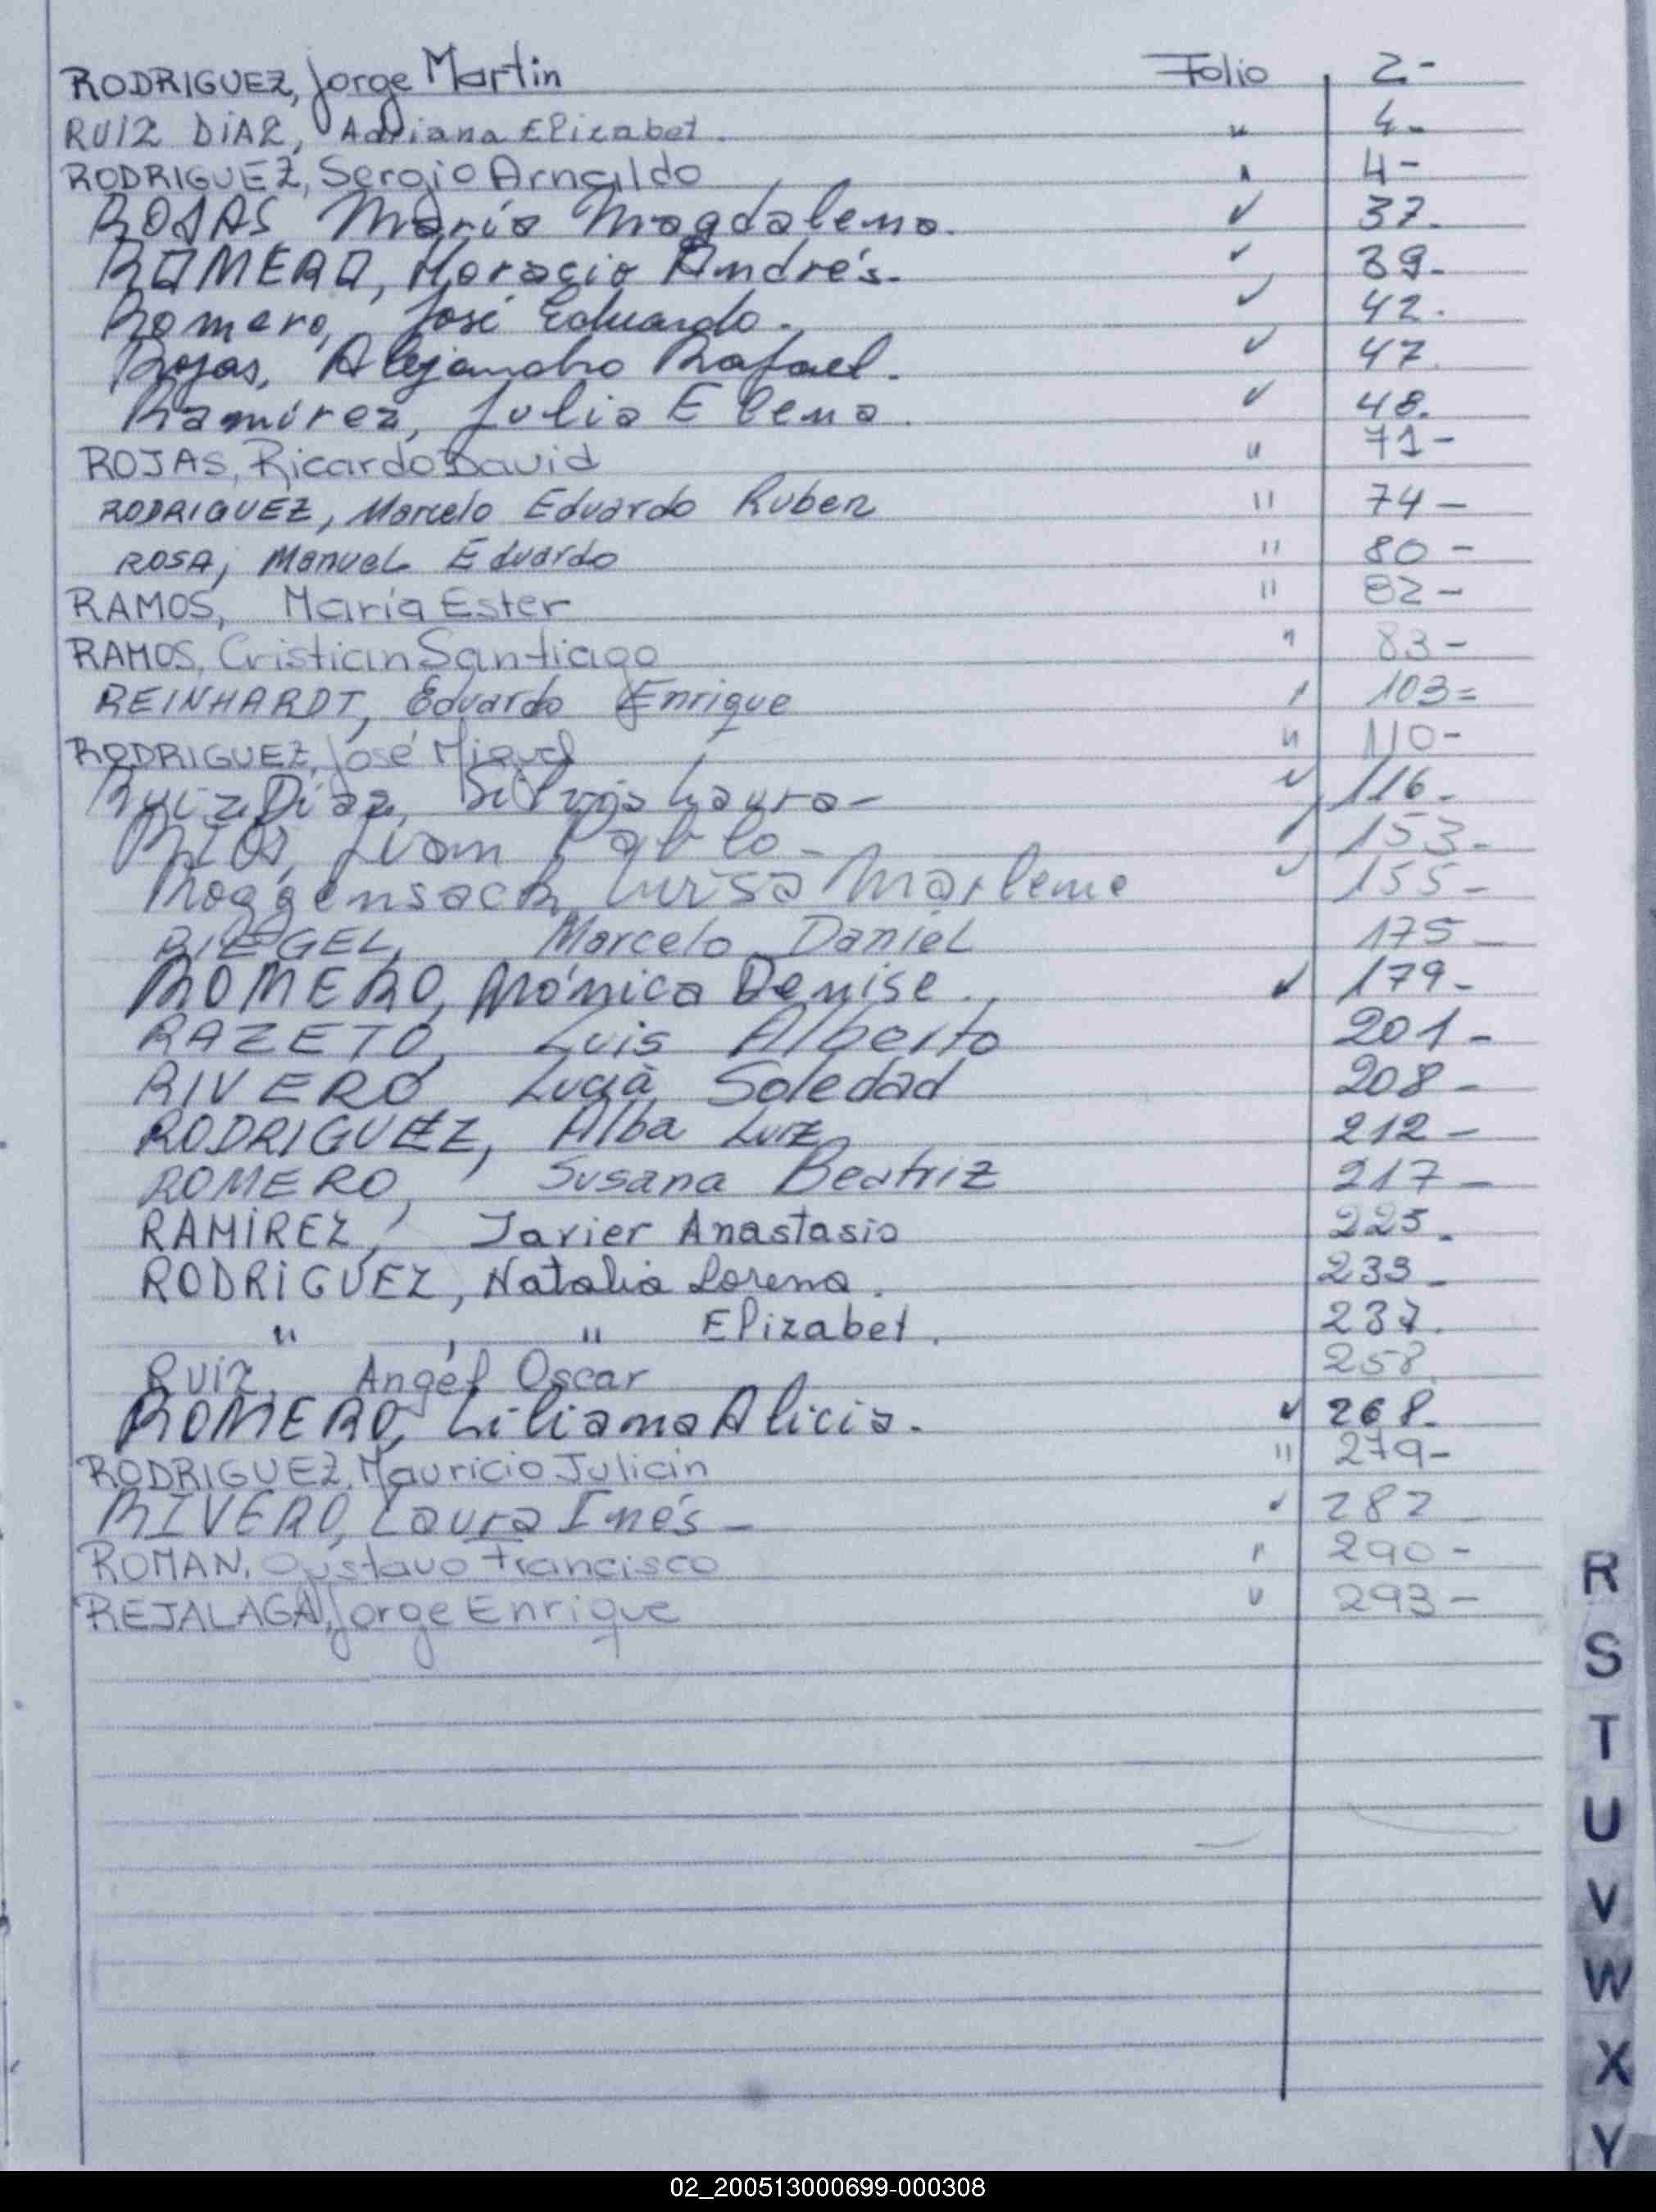 RODRIGUEZ, Jorge Martin Folio 2-
RUIZ DIAZ, Adriana Elizabet. " 4-
RODRIGUEZ, Sergio Arnaldo " 4-
ROJAS María Magdalena. ✓ 37.
ROMERO, Horacio Andrés. ✓ 39-
Romero, José Eduardo. ✓ 42.
Rojas, Alejandro Rafael. ✓ 47.
Ramírez, Julia Elena. ✓ 48.
ROJAS, Ricardo David " 71-
RODRIGUEZ, Marcelo Eduardo Ruben " 74-
ROSA, Manuel Eduardo " 80-
RAMOS, María Ester " 82-
RAMOS, Cristian Santiago " 83-
REINHARDT, Eduardo Enrique " 103=
RODRIGUEZ, José Miguel " 110-
Ruiz Díaz, Silvia Laura- ✓ 116-
RIOS, Juan Pablo- ✓ 153-
Roggensack, Luisa Marlene ✓ 155-
RIEGEL, Marcelo Daniel 175-
ROMERO, Mónica Denise. ✓ 179-
RAZETO, Luis Alberto 201-
RIVERO Lucía Soledad 208-
RODRIGUEZ, Alba Luz 212-
ROMERO, Susana Beatriz 217-
RAMÍREZ, Javier Anastasio 225-
RODRÍGUEZ, Natalia Lorena. 233-
" , " Elizabet. 237.
Ruiz, Angel Oscar 258.
ROMERO, Liliana Alicia. ✓ 268.
RODRIGUEZ, Mauricio Julian " 279-
RIVERO, Laura Inés- ✓ 282
ROMAN, Gustavo Francisco " 290-
REJALAGA, Jorge Enrique " 293-
R
S
T
U
V
W
X
Y
02_200513000699-000308